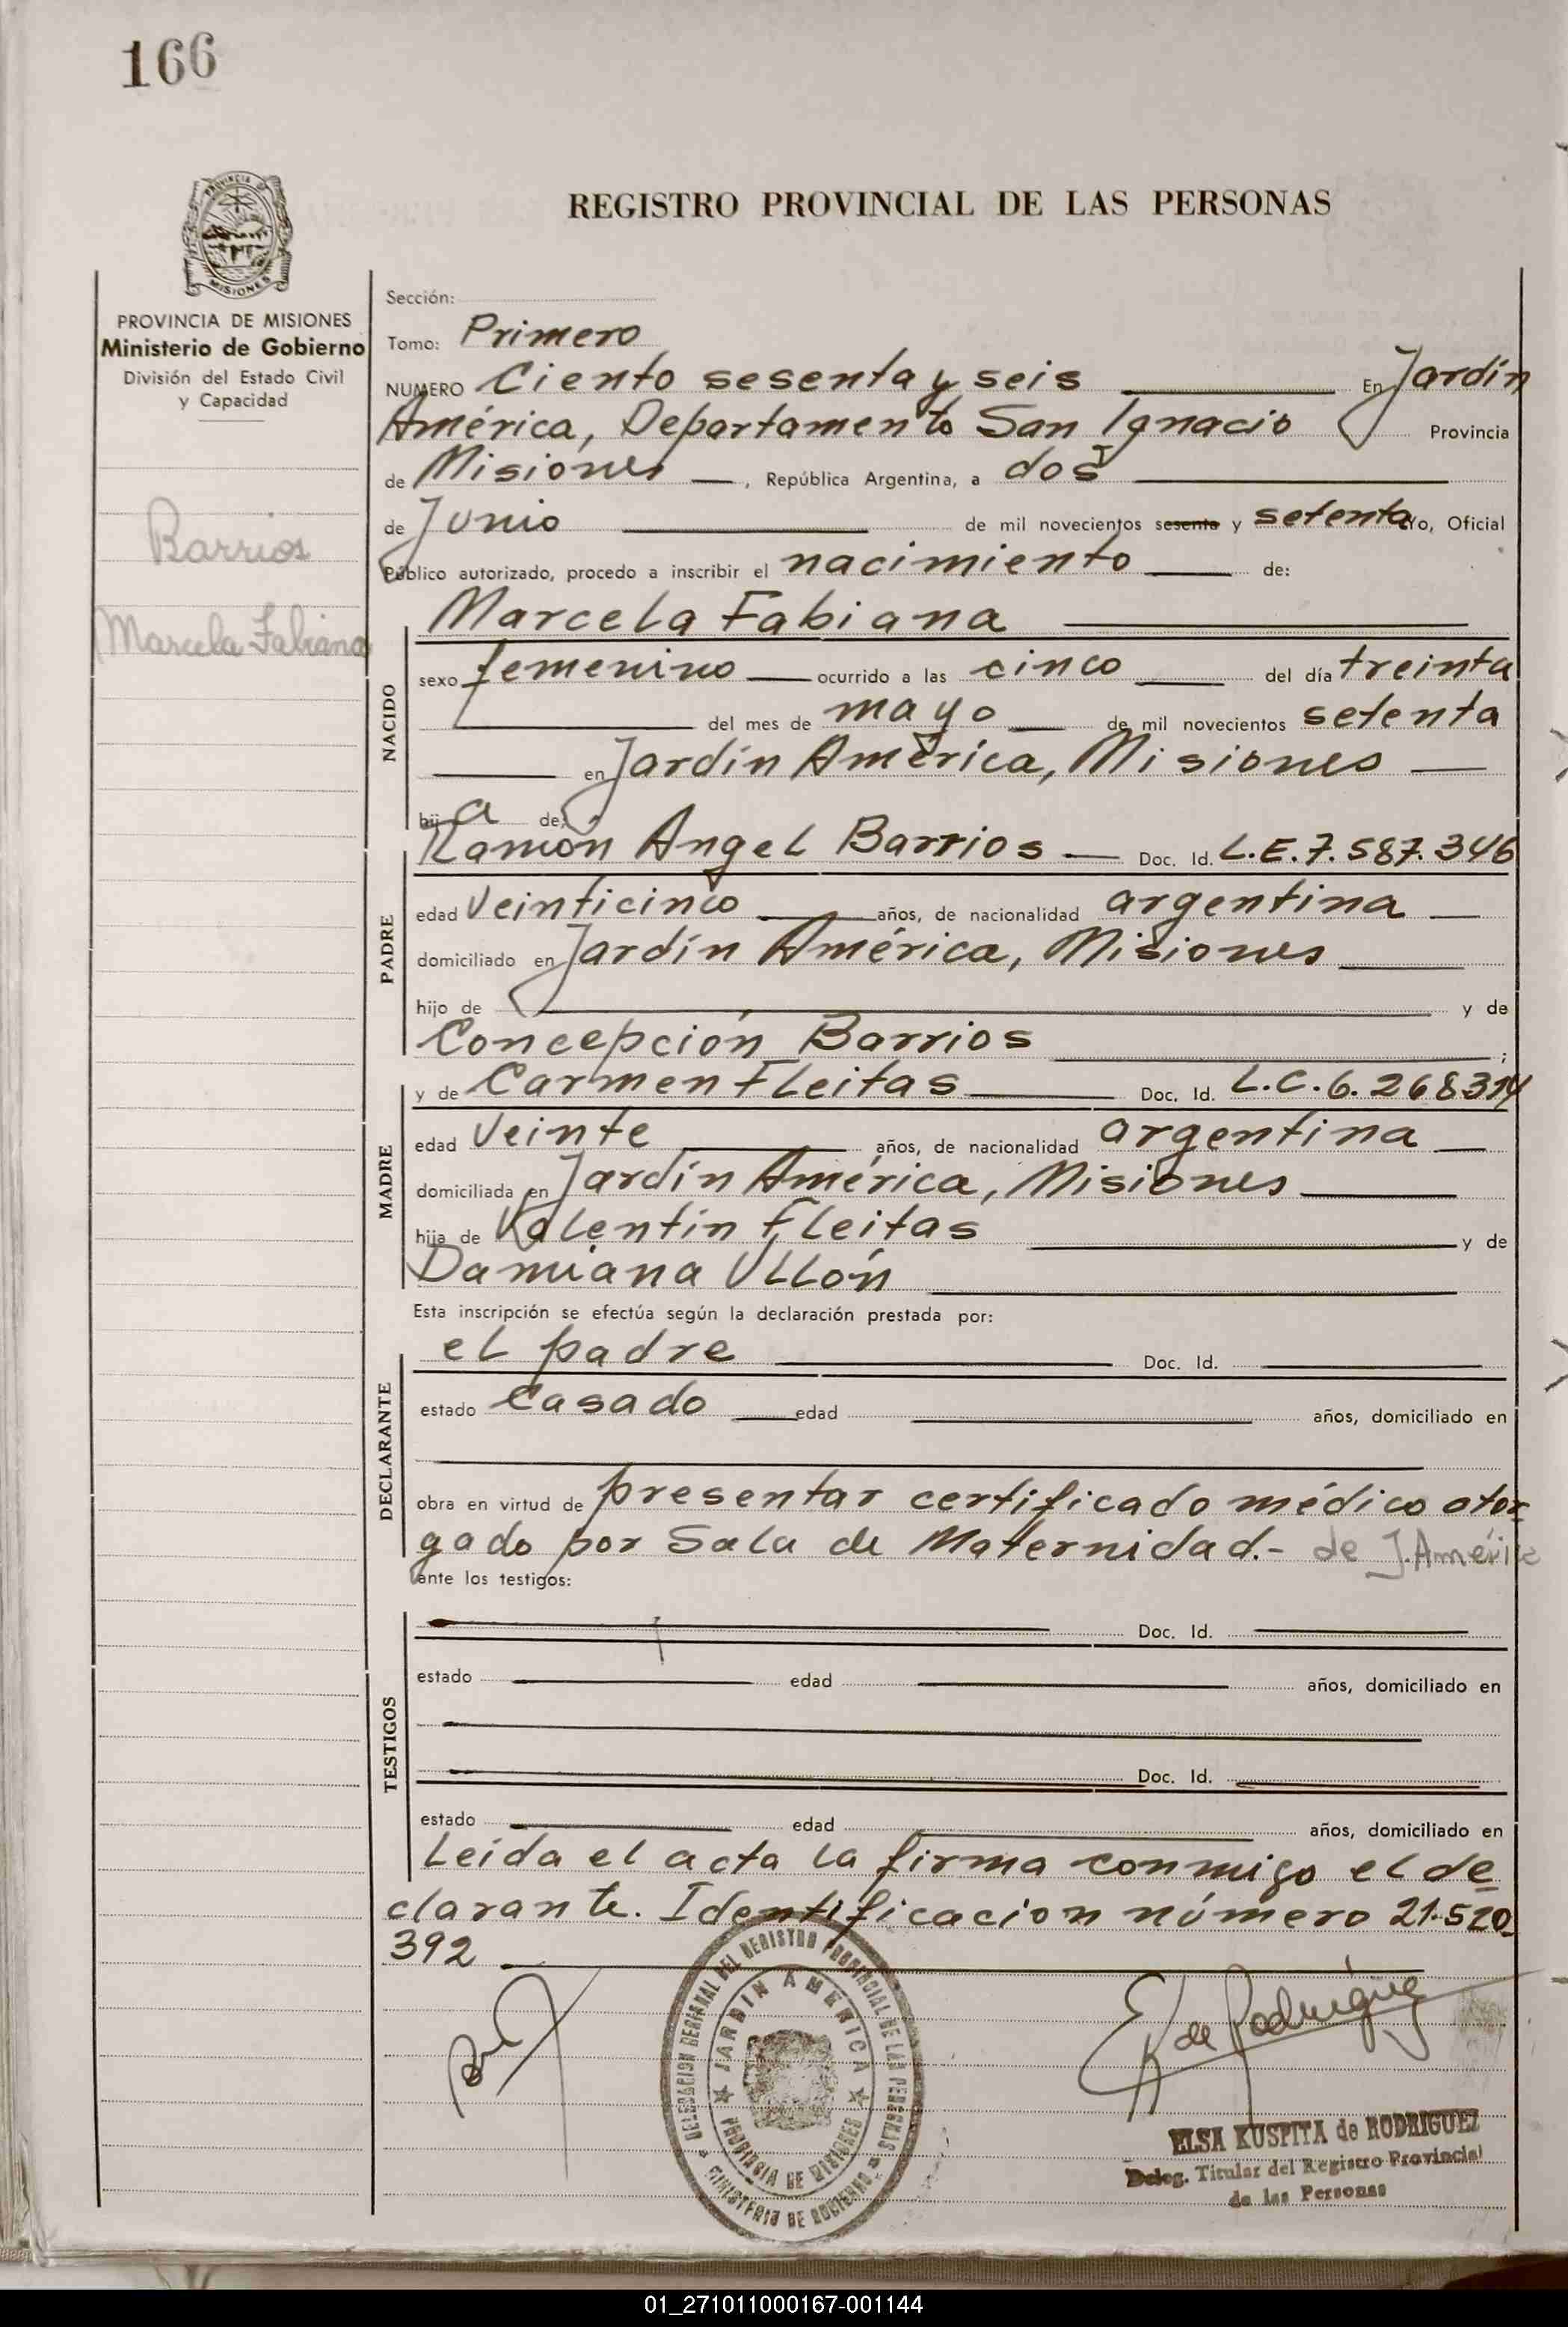 166
PROVINCIA DE
MISIONES
REGISTRO PROVINCIAL DE LAS PERSONAS
PROVINCIA DE MISIONES
Ministerio de Gobierno
División del Estado Civil
y Capacidad
Barrios
Marcela Fabiana
Sección:
Tomo: Primero
NUMERO Ciento sesenta y seis En Jardín
América, Departamento San Ignacio Provincia
de Misiones, República Argentina, a dos
de Junio de mil novecientos sesenta y setenta Yo, Oficial
Público autorizado, procedo a inscribir el nacimiento de:
Marcela Fabiana
NACIDO
sexo femenino ocurrido a las cinco del día treinta
del mes de mayo de mil novecientos setenta
en Jardín América, Misiones
hij a de:
Ramón Angel Barrios Doc. Id. L.E. 7.587.346
PADRE
edad Veinticinco años, de nacionalidad argentina
domiciliado en Jardín América, Misiones
hijo de y de
Concepción Barrios ;
y de Carmen Fleitas Doc. Id. L.C. 6.268
MADRE
edad Veinte años, de nacionalidad argentina
domiciliada en Jardín América, Misiones
hija de Valentín Fleitas y de
Damiana Ullón
Esta inscripción se efectúa según la declaración prestada por:
el padre Doc. Id.
DECLARANTE
estado Casado edad años, domiciliado en
obra en virtud de presentar certificado médico otor
gado por Sala de Maternidad.- de J. Améric
ante los testigos:
Doc. Id.
TESTIGOS
estado edad años, domiciliado en
Doc. Id.
estado edad años, domiciliado en
Leída el acta la firma conmigo el de
clarante. Identificacion número 21.520
392
E K de Rodríguez
DELEGACION REGIONAL DEL REGISTRO PROVINCIAL DE LAS PERSONAS
MINISTERIO DE GOBIERNO
JARDIN AMERICA
PROVINCIA DE MISIONES
ELSA KUSPITA de RODRIGUEZ
Deleg. Titular del Registro Provincial
de las Personas
01_271011000167-001144